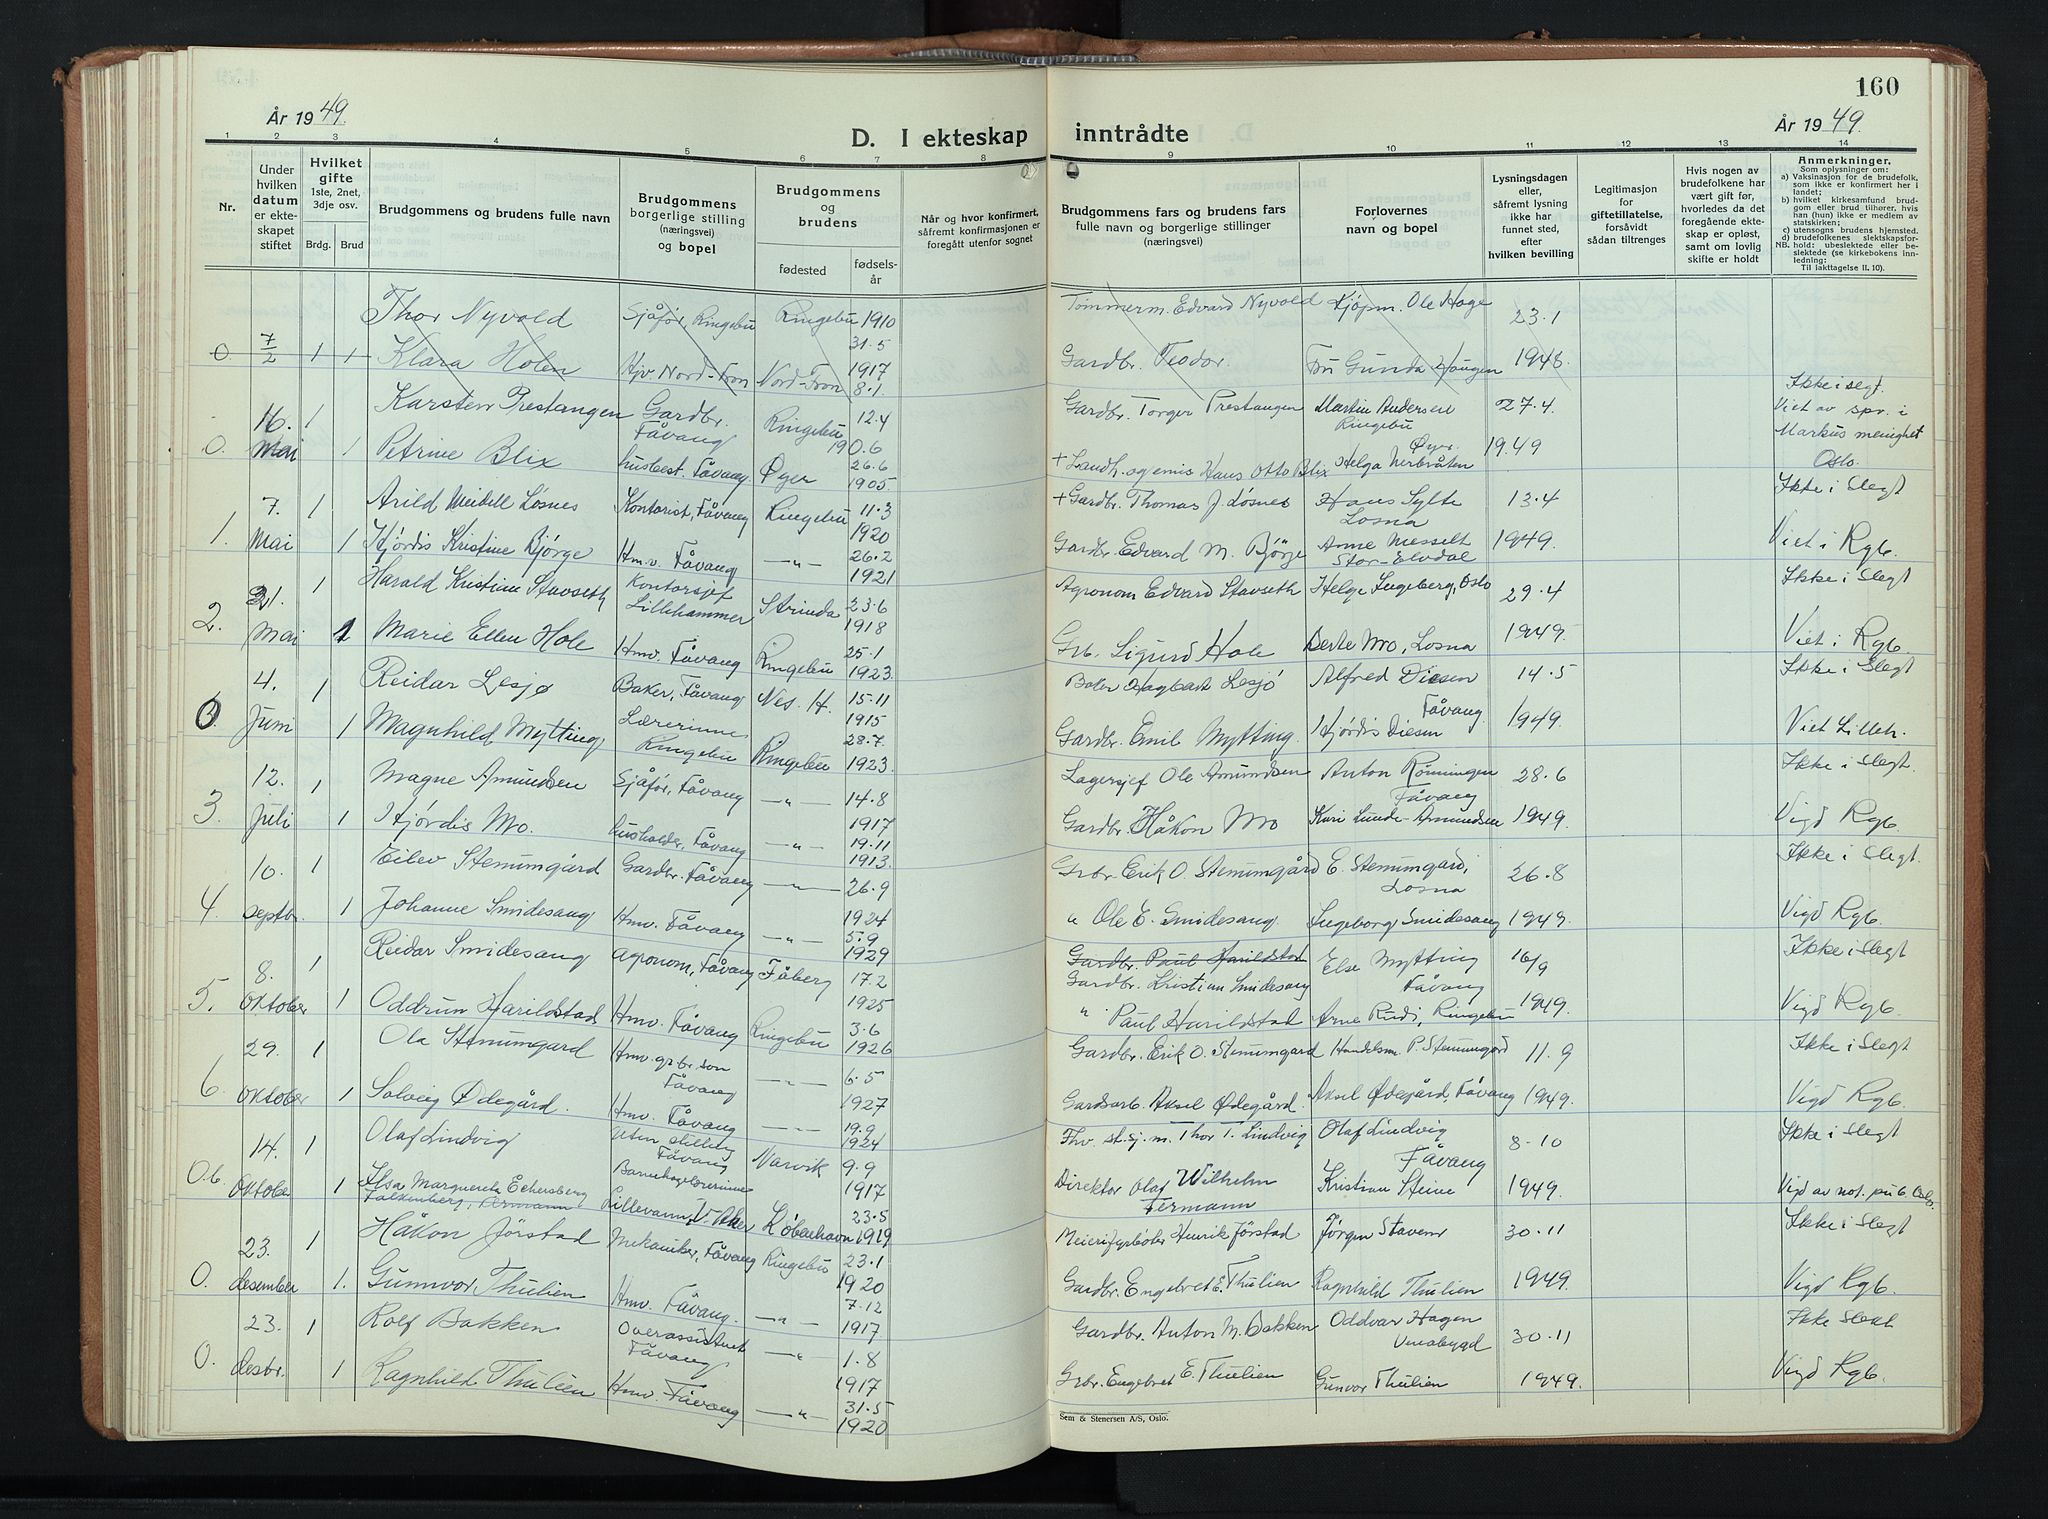 160
År 1949.
År 1949.
D. I ekteskap inntrådte
1 2 3 4 5 6 7 8 9 10 11 12 13 14
Nr.
Under hvilken datum er ekteskapet stiftet
Hvilket gifte 1ste, 2net, 3dje osv.
Brdg. Brud
Brudgommens og brudens fulle navn
Brudgommens borgerlige stilling (næringsvei) og bopel
Brudgommens og brudens
fødested
fødselsår
Når og hvor konfirmert, såfremt konfirmasjonen er foregått utenfor sognet
Brudgommens fars og brudens fars fulle navn og borgerlige stillinger (næringsvei)
Forlovernes navn og bopel
Lysningsdagen eller, såfremt lysning ikke har funnet sted, efter hvilken bevilling
Legitimasjon for giftetillatelse, forsåvidt sådan tiltrenges
Hvis nogen av brudefolkene har vært gift før, hvorledes da det foregående ekteskap er opløst, samt om lovlig skifte er holdt
Anmerkninger.
Som oplysninger om:
a) Vaksinasjon for de brudefolk, som ikke er konfirmert her i landet;
b) hvilket kirkesamfund brudgom eller brud tilhører, hvis han (hun) ikke er medlem av statskirken;
c) utensogns brudens hjemsted.
d) brudefolkenes slektskapsforhold: ubeslektede eller beslektede (se kirkebokens innledning:
NB.
Til iakttagelse II. 10).
0. 7/2 1 1 Thor Nyvold Sjåfør, Ringebu Ringebu 1910 31.5 Tømmerm. Edvard Nyvold Kjøpm. Ole Hage 23.1
Klara Holen Hjv. Nord-Fron Nord-Fron 1917 8.1. Gardbr. Teodor. Fru Gunda Haugen 1948.
0. 16. Mai 1 Karsten Prestangen Gardbr. Fåvang Ringebu 12.4 190.6 Gardbr. Torger Prestangen Martin Andersen Ringebu 27.4. Ikke i slegt. Viet av spr. i
1 Petrine Blix husbest. Fåvang. Øyer 26.6 1905 + Landh. og emis Hans Otto Blix Helga Nerbråten Øyer. 1949 Markus menighet Oslo.
1. 7. Mai 1 Arild Meidell Løsnes Kontorist, Fåvang Ringebu 11.3 1920 + Gardbr. Thomas J. Løsnes Hans Sylte Losna 13.4 Ikke i Slegt
1 Hjördis Kristine Bjørge Hm.v. Fåvang — " — 26.2 1921 Gardbr. Edvard M. Björge Anne Messelt Stor-Elvdal 1949. Viet i Rgb.
2. 21. Mai 1 Harald Kristian Stavseth Kontorsjef Lillehammer Strinda 23.6 1918 Agronom Edvard Stavseth Helge Ingeberg, Oslo 29.4 Ikke i Slegt
1 Marie Ellen Hole Hmv. Fåvang Ringebu 25.1 1923 Grb. Sigurd Hole Berte Mo, Losna 1949. Viet i Rgb.
0. 4. Juni 1 Reidar Lesjø Baker, Fåvang Nes. H. 15.11 1915 Baker Hagbart Lesjö Alfred Diesen Fåvang 14.5 Ikke i Slegt
1 Magnhild Mytting Lærerinne Ringebu Ringebu 28.7. 1923. Gardbr. Emil Mytting. Hjördis Diesen 1949. Viet Lilleh.
3. 12. Juli 1 Magne Amundsen Sjåfør, Fåvang — " — 14.8 1917 Lagersjef Ole Amundsen Anton Rönningen Fåvang 28.6 Ikke i Slegt.
1 Hjördis Mo. husholder, Fåvang — " — 19.11 1913. Gardbr. Håkon Mo Kari Lunde-Amundsen 1949. Vigd Rgb.
4. 10. septbr. 1 Eilev Stenumgård Gardbr. Fåvang — " — 26.9 1924 Grbr. Erik O. Stenumgård E. Stenumgård, Losna 26.8 Ikke i Slegt.
1 Johanne Smidesang Hmv. Fåvang — " — 5.9 1929 " Ole E. Smidesang Ingeborg Smidesang 1949. Vigd Rgb.
5. 8. Oktober 1 Reidar Smidesang Agronom, Fåvang Fåberg 17.2 1925 Gardbr. Paul Harildstad Gardbr. Kristian Smidesang Else Mytting Fåvang 16/9 Ikke i Slegt
1 Oddrun Harildstad Hmv. Fåvang Ringebu 3.6 1926 " Paul Harildstad Arne Rudi, Ringebu 1949. Vigd Rgb.
6. 29. Oktober 1 Ola Stenumgard Hmv. grbr. son Fåvang — " — 6.5 1927 Gardbr. Erik O. Stenumgard Handelsm. P. Stenumgård 11.9 Ikke i Slegt
1 Solveig Ødegård. Hmv. Fåvang — " — 19.9 1924 Gardsarb. Aksel Ødegård. Aksel Ødegård, Fåvang 1949. Vigd Rgb.
0.6. 14. Oktober 1 Olaf Lindvig Uten stilling Fåvang Narvik 9.9 1917 Fhv. st.sj. m. Thor T. Lindvig Olaf Lindvig Fåvang 8-10 Ikke i Slegt
1 Elsa Marguereta Eckersberg Falkenberg, Fermann Barnehagelærerinne Lillevann, V. Aker København 23.5 1919 Direktor Olaf Wilhelm Fermann Kristian Steine 1949. Vigd av not. pub. Oslo.
0. 23. desember 1 Håkon Jörstad Mekaniker, Fåvang Ringebu 23.1 1920 Meierifyrbøter Henrik Jörstad Jørgen Stavem 30.11 Ikke i Slegt
1. Gunnvor Thulien Hmv. Fåvang. — " — 7.12 1917 Gardbr. Engebret E. Thulien Ragnhild Thulien 1949. Vigd Rgb.
0. 23. desbr. 1 Rolf Bakken Overassistent Fåvang — " — 1.8 1917 Gardbr. Anton M. Bakken Oddvar Hagen Venabygd 30.11 Ikke Slekt
1 Ragnhild Thulien Hmv. Fåvang — " — 31.5 1920 Grbr. Engebret E. Thulien Gunvor Thulien 1949. Vigd Rgb.
Sem & Stenersen A/S, Oslo.